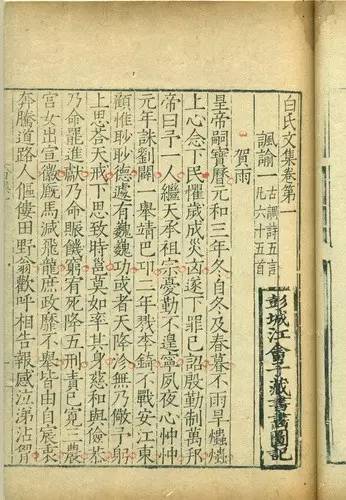 白氏文集卷第一
諷諭一 古調詩五言
凡六十五首
賀雨
皇帝嗣寶曆元和三年冬自冬及春暮不雨旱爞爞
上心念下民懼歲成災凶遂下罪己詔殷勤制萬邦
帝曰予一人繼天承祖宗憂勤不遑寧夙夜心忡忡
元年誅劉闢一舉靖巴邛二年戮李錡不戰安江東
顧惟眇眇德遽有巍巍功或者天降沴無乃儆予躬
上思答天戒下思致時邕莫如率其身慈和與儉恭
乃命罷進獻乃命賑饑窮宥死降五刑責己寬三農
宮女出宣徽廄馬減飛龍庶政靡不舉皆由自宸衷
奔騰道路人傴僂田野翁歡呼相告報感泣涕沾胷
彭城江子藏書畫圖記